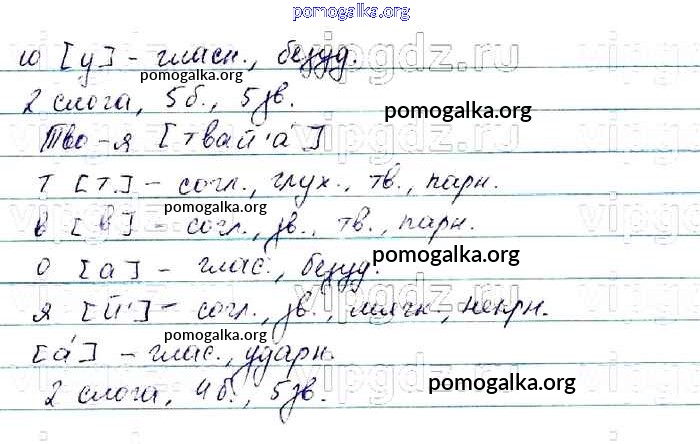 pomogalka.org
ю [у] - гласн., безуд.
pomogalka.org
2 слога, 5б., 5зв.
pomogalka.org
Тво-я [твай'а́]
pomogalka.org
т [т] - согл., глух., тв., парн.
pomogalka.org
в [в] - согл., зв., тв., парн.
pomogalka.org
о [а] - глас., безуд.
pomogalka.org
я [й'] - согл., зв., мягк., непрн.
pomogalka.org
[а́] - глас., ударн.
pomogalka.org
2 слога, 4б., 5зв.
vipgdz.ru